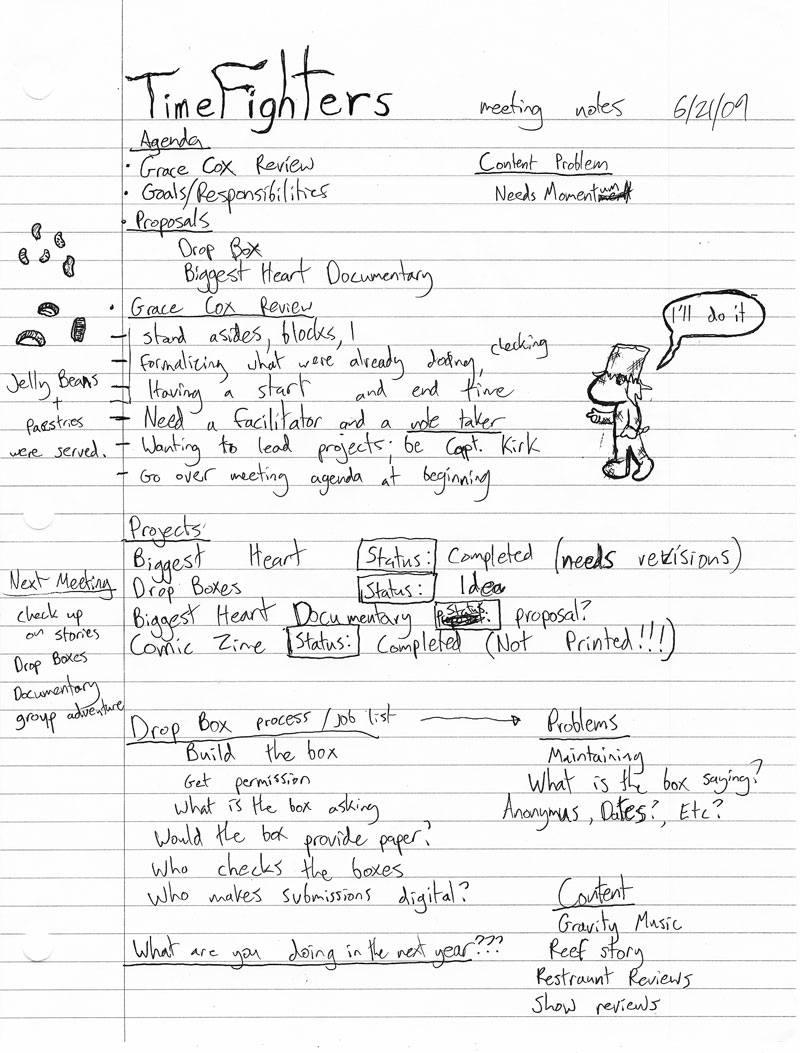 TimeFighters meeting notes 6/21/09
Agenda
• Grace Cox Review
• Goals/Responsibilities
• Proposals
Drop Box
Biggest Heart Documentary
Content Problem
Needs Momentum
• Grace Cox Review
- stand asides, blocks,
- formalizing what were already doing, checking
- Having a start and end time
- Need a facilitator and a note taker
- Wanting to lead projects; be Capt. Kirk
- Go over meeting agenda at beginning
I'll do it
Jelly Beans
+
Paestries
were served.
Projects:
Biggest Heart Status: Completed (needs revisions)
Drop Boxes Status: Idea
Biggest Heart Documentary Status: proposal?
Comic Zine Status: Completed (Not Printed!!!)
Next Meeting
check up
on stories
Drop Boxes
Documentary
group adventure
Drop Box process/job list
Build the box
Get permission
What is the box asking
Would the box provide paper?
Who checks the boxes
Who makes submissions digital?
What are you doing in the next year???
Problems
Maintaining
What is the box saying?
Anonymus, Dates?, Etc?
Content
Gravity Music
Reef story
Restraunt Reviews
Show reviews